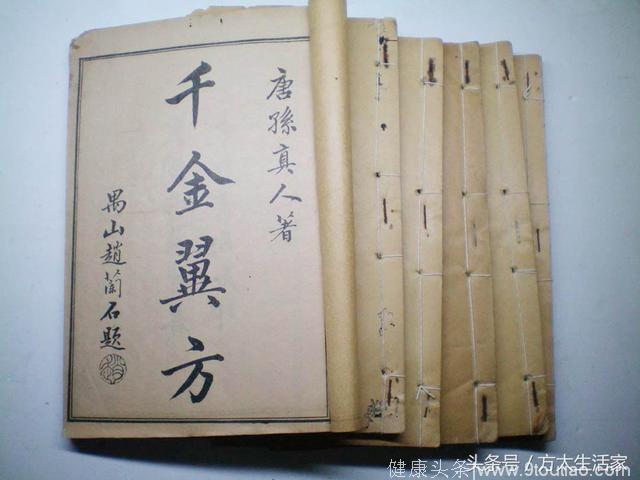 唐孫真人著
千金翼方
禺山趙蘭石題
头条号/方太生活家
健康头条 www.9toutiao.com